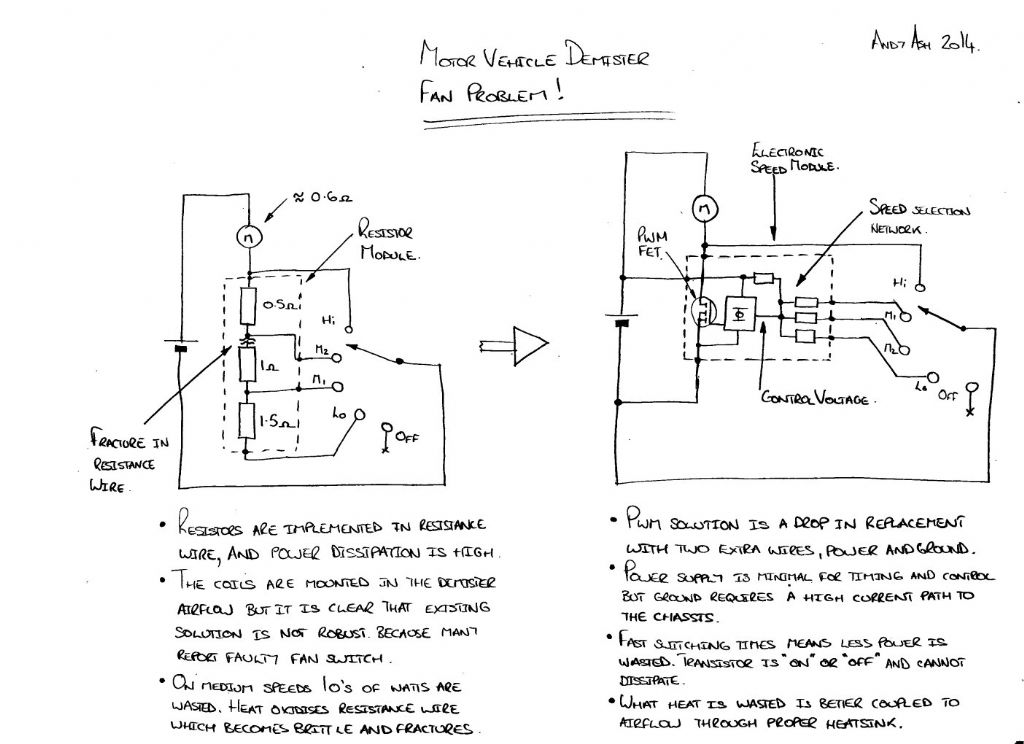 Andy Ash 2014.
Motor Vehicle Demister
Fan Problem!
≈ 0.6Ω
M
Resistor
Module.
0.5Ω
Hi
M2
1Ω
M1
Lo
1.5Ω
Off
Fracture in
resistance
wire.
Electronic
Speed Module.
M
Speed selection
network.
PWM
FET.
Hi
M1
M2
Lo
Off
Control Voltage.
• Resistors are implemented in resistance
wire, and power dissipation is high.
• The coils are mounted in the demister
airflow but it is clear that existing
solution is not robust. Because many
report faulty fan switch.
• On medium speeds 10's of watts are
wasted. Heat oxidises resistance wire
which becomes brittle and fractures.
• PWM solution is a drop in replacement
with two extra wires, power and ground.
• Power supply is minimal for timing and control
but ground requires a high current path to
the chassis.
• Fast switching times means less power is
wasted. Transistor is "on" or "off" and cannot
dissipate.
• What heat is wasted is better coupled to
airflow through proper heatsink.